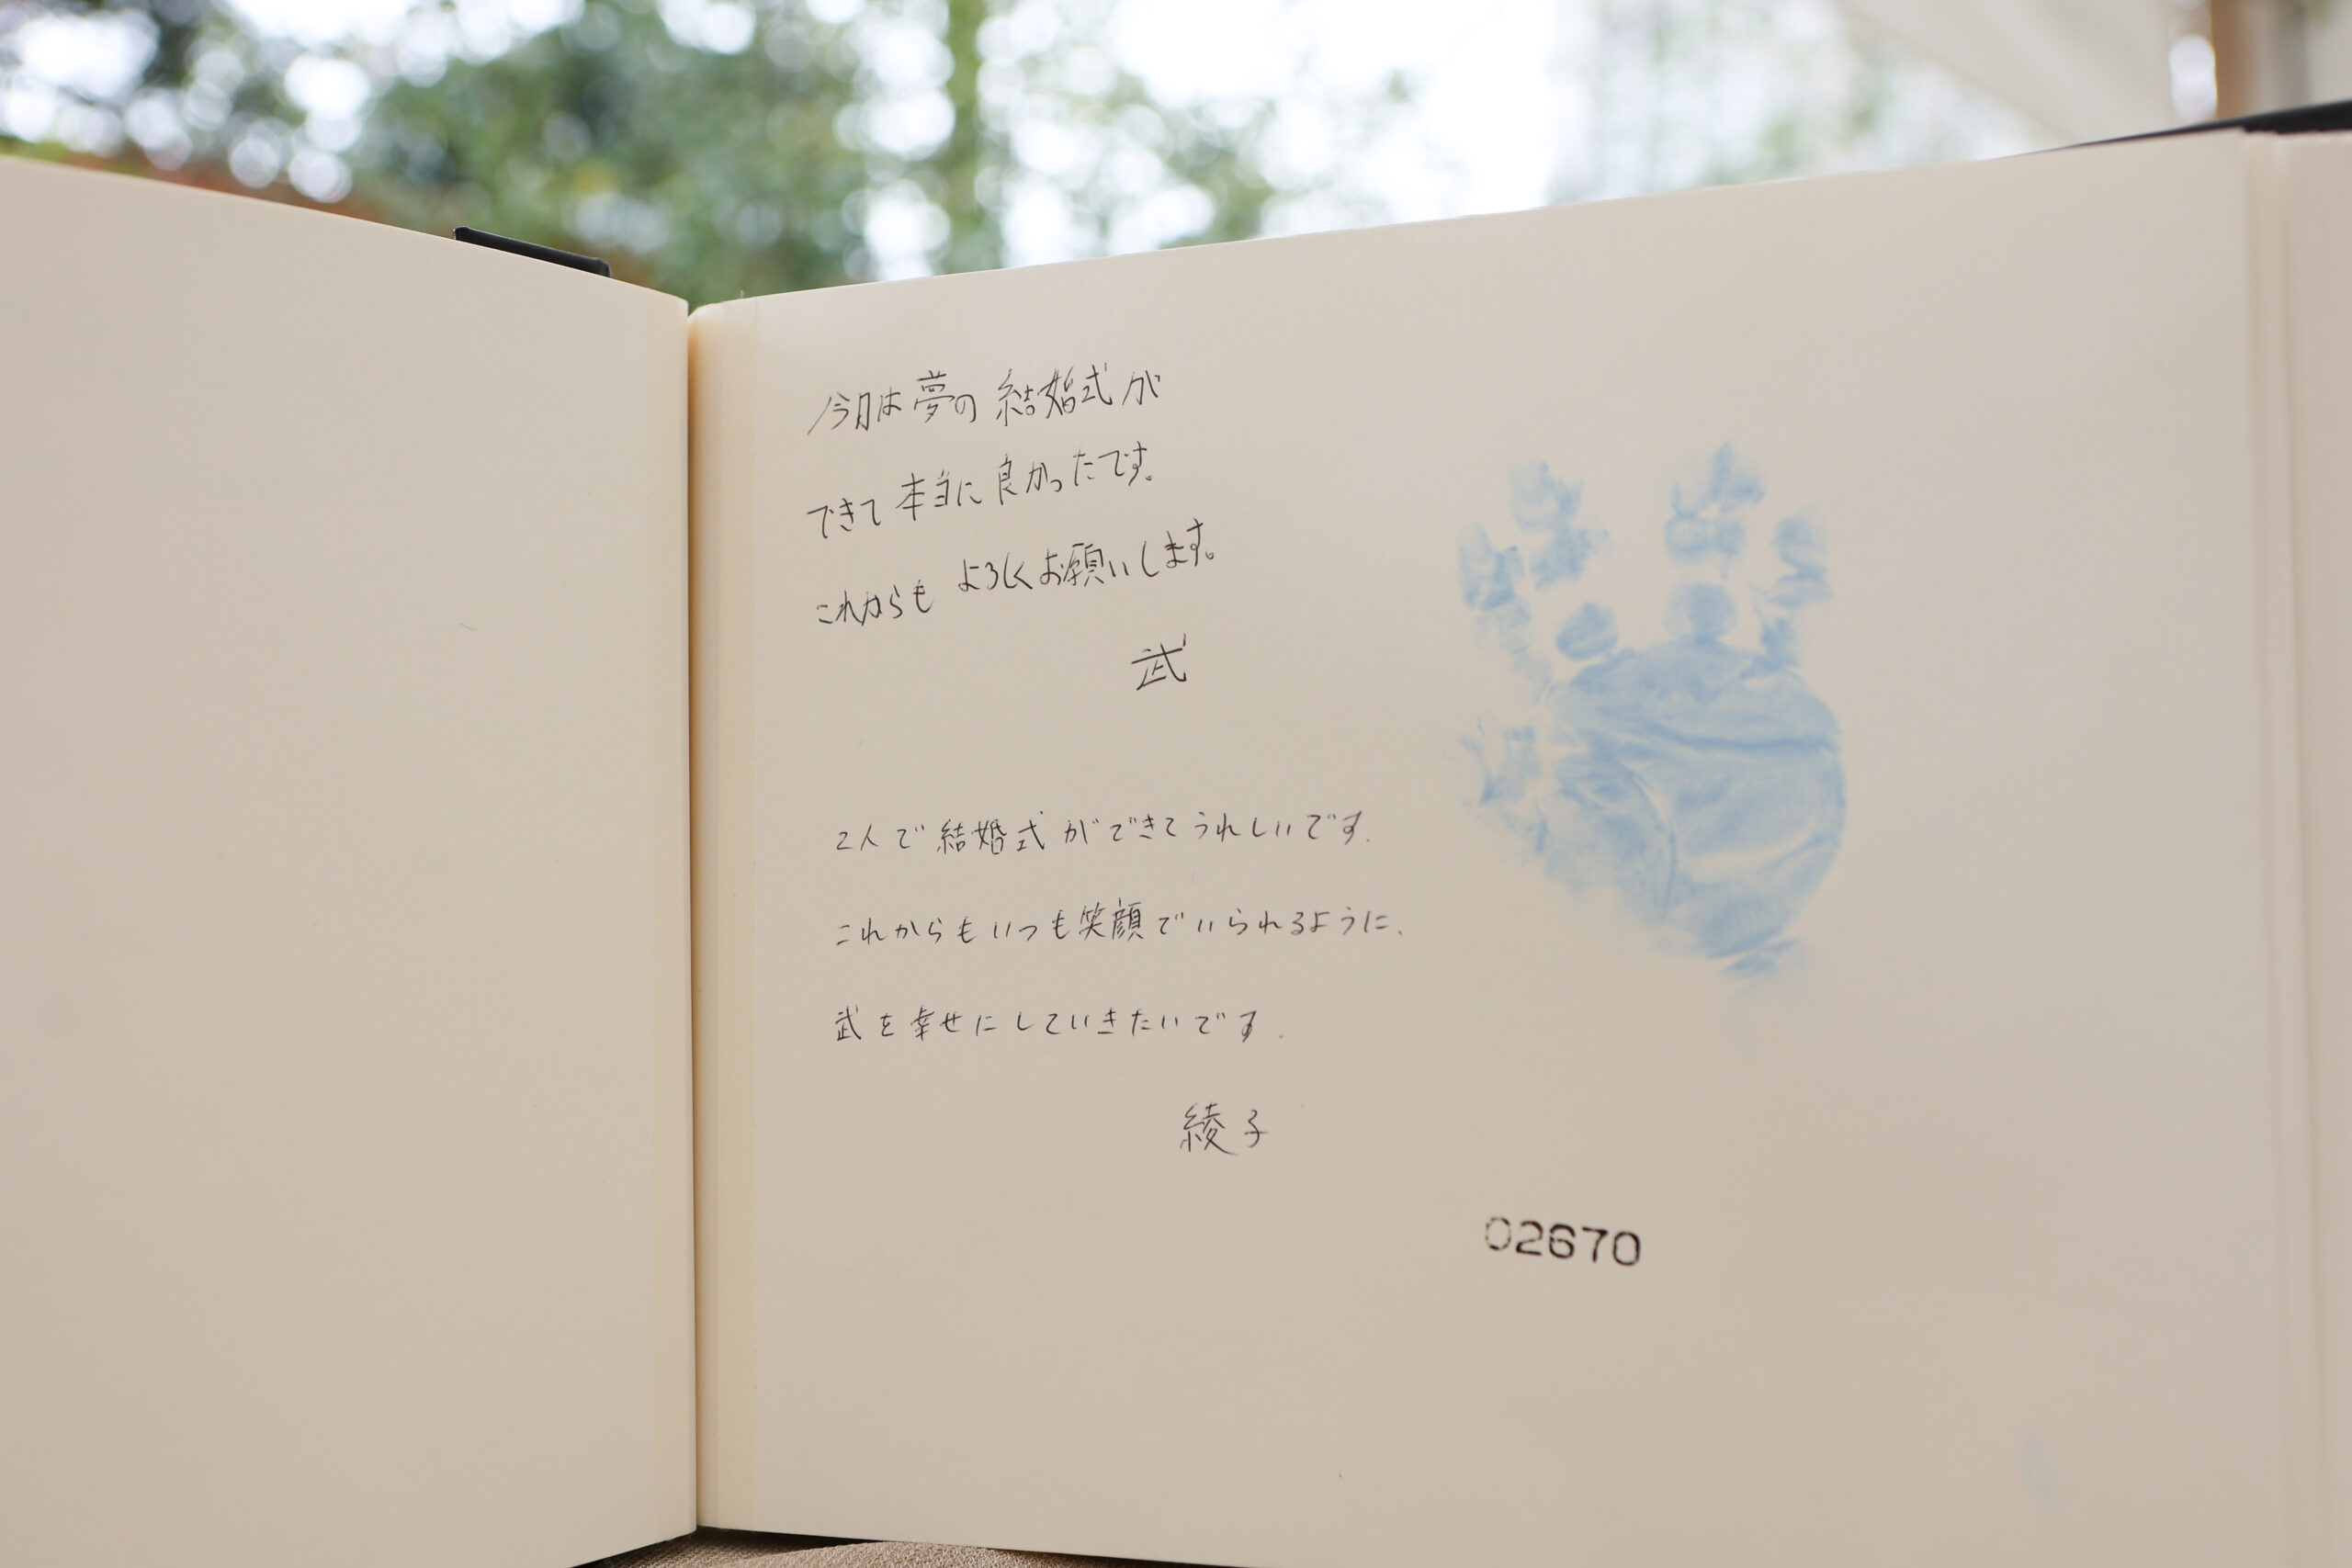 今日は夢の結婚式が
できて本当に良かったです。
これからもよろしくお願いします。
武
2人で結婚式ができてうれしいです.
これからもいつも笑顔でいられるように、
武を幸せにしていきたいです.
綾子
02670